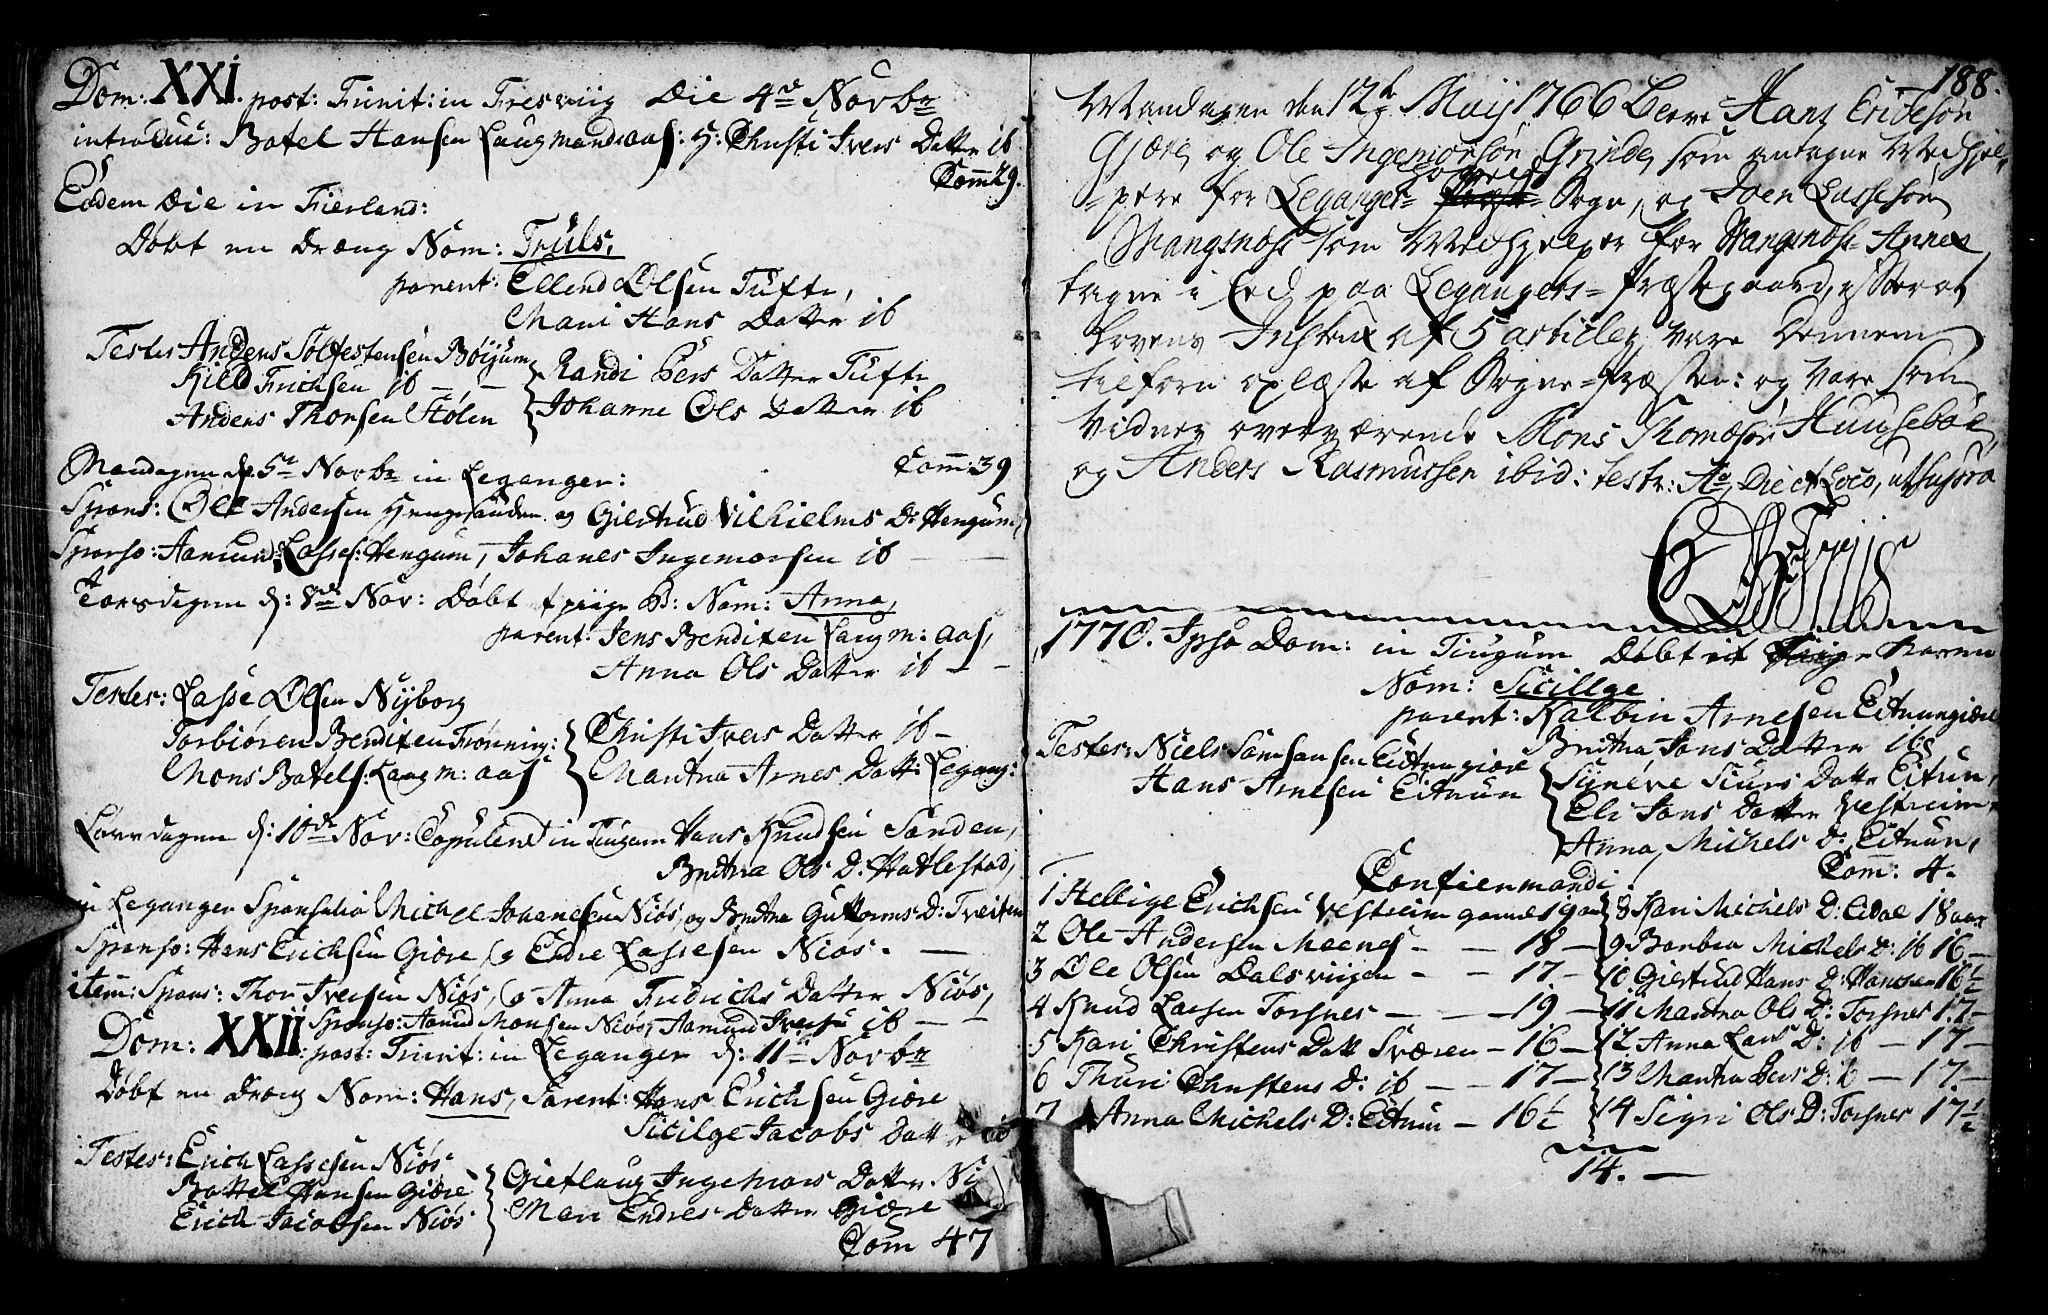 Dom: XXI. post: Trinit: in Fresviig Die 4de Novbr
introduc: Botel Hansen Laugmandsaas: H: Christi Ivers Datter ib
Com̅ 29.
Eodem Die in Fierland:
Døbt en Dræng Nom: Truls,
parent: Ellend Olsen Tufte,
Mari Hans Datter ib
Testes Anders Sølfestensen Bøijum
Kield Frichsen ib — —
Randi Pers Datter Tufte
Anders Thorsen Stølen
Johanne Ols Datter ib
Mandagen d: 5te Novbr in Leganger:
Com̅: 39
Spons: Ole Andersen Hengesanden og Giertrud Vilhielms D: Hengum,
Sponso: Aamund Lasses: Hengum, Johanes Ingemorsen ib —
Torsdagen d: 8de Nov: Døbt et piige B: Nom: Anna,
parent: Jens Bendixen Laugm: aas,
Anna Ols Datter ib — —
Testes: Lasse Olsen Nyborg
Torbiøren Bendixen Frønning:
Christi Ivers Datter ib —
Mons Botels: Laugm: aas
Martha Arnes Datt: Legang:
Løverdagen d: 10de Nov: Copulered in Tiugum Hans Knudsen Sanden,
Britha Ols D: Hatlestad,
in Leganger Sponsalia Michel Johanesen Niøs, og Britha Guttorms D: Tveiten
Sponso: Hans Erichsen Giøre, og Endre Lassesen Niøs. —
item: Spons: Thor Iversen Niøs, og Anna Fridrichs Datter Niøs,
Sponso: Aamund Monsen Niøs, Aamund Iversen ib — —
Dom: XXII post: Trinit: in Leganger d: 11te Novbr
Døbt en Dræng Nom: Hans, Parent: Hans Erichsen Giøre
Sicilge Jacobs Datter ib
Testes: Erich Lassesen Niøs
Botel Hansen Giøre
Gietlaug Ingemors Datter Ni
Erich Jacobsen Niøs
Mari Endres Datter Giøre
Com̅ 47
188.
Mandagen den 12te Maij 1766 bleve Hans Ericsøn
Gjøre, og Ole Ingemorsøn Grinde, som antagne Medhjel-
-pere for Leganger= Hoved Sogn, og Joen Lassesøn
Wangsnæss som Medhjelper for Wangsnæss=Annex,
tagne i Eed paa Legangers=Præstegaard, efterat
Lovens Instrux af 5 articler vare dennem
tilforn oplæste af Sogne=Præsten: og vare som
Vidner overværende Mons Thomæsøn Huusebøe,
og Anders Rasmussen ibid: testr: Ao, Die et Loco, ut supra
1770. Ipso Dom: in Tiugum Døbt et Pige Barn
Nom: Sicillge
parent: Kalbin Arnesen Eitrungiøre
Britha Jons Datter ib
Testes: Niels Samsonsen Eitrungiøre
Hans Arnesen Eitrun
Syneve Siurs Datter Eitrun,
Eli Jons Datter Vestreim,
Anna Michels D: Eitrun,
Com̅: 4.
Confirmandi
1 Hellige Erichsen Vestreim gamel 19 aar 8 Kari Michels D: Eidal 18 aar
2 Ole Andersen Meenes — — 18 — 9 Barbra Michels D: ib 16 —
3 Ole Olsen Dalsviigen — — 17 — 10 Giertrud Hans D: Hansen 16½
4 Knud Larsen Torsnes — — 19 — 11 Martha Ols D: Torsnes 17 —
5 Kari Christens Datt Sværen — 16 — 12 Anna Lars D: ib — 17 —
6 Thuri Christens D: ib — — 17 — 13 Martha Pers D: ib — 17. —
7 Anna Michels D: Eitrun — 16½ 14 Sigri Ols D: Torsnes 17½
14. —